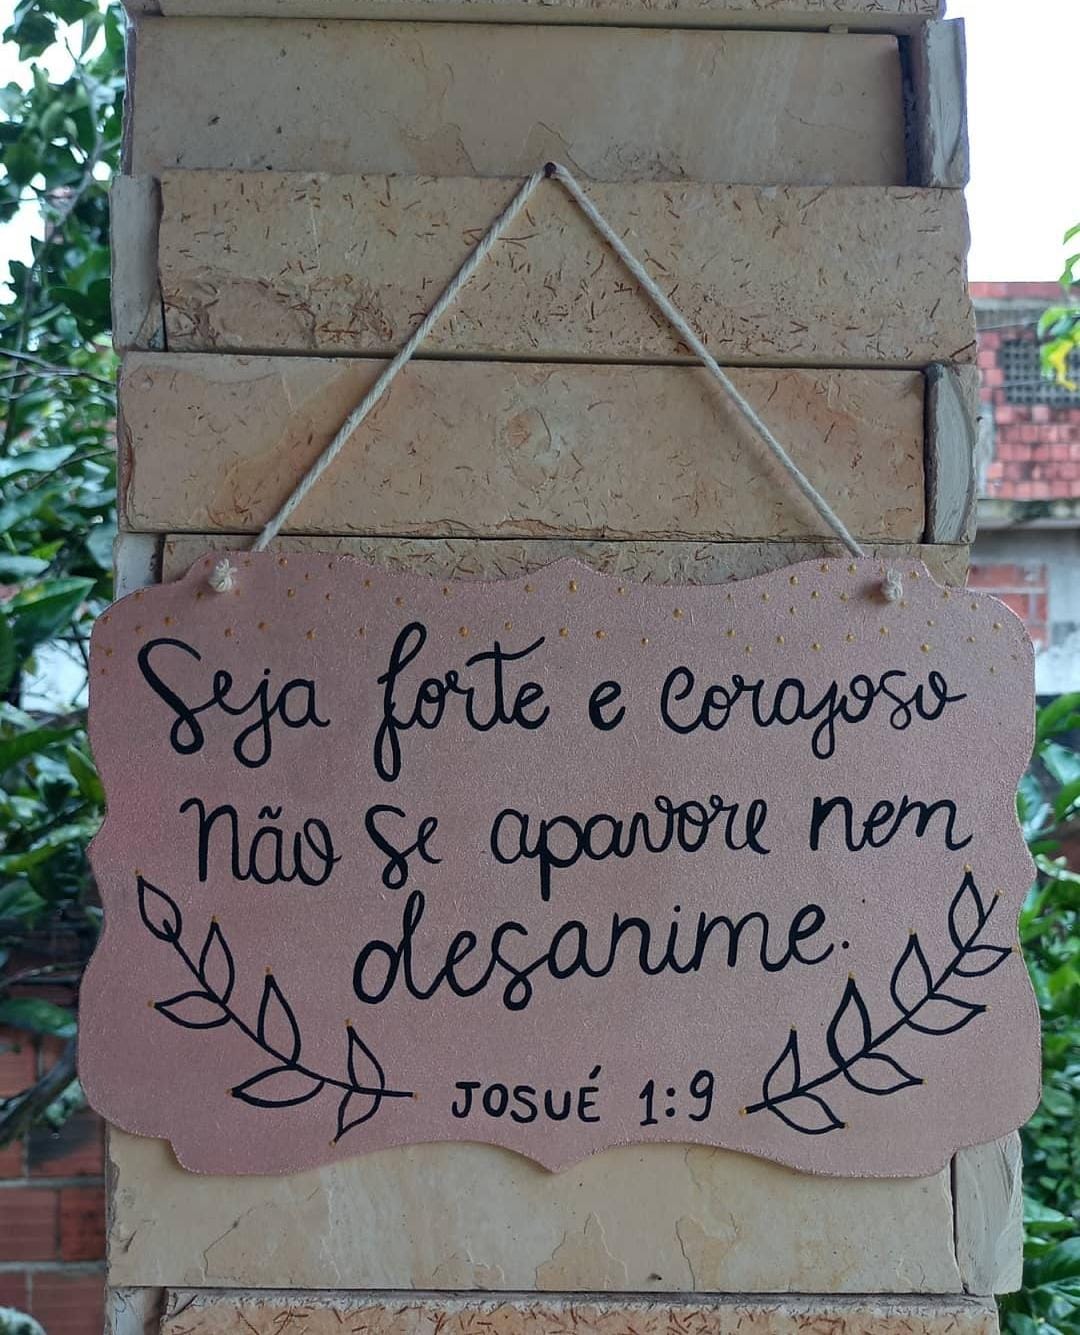 Seja forte e corajoso
Não se apavore nem
desanime.
JOSUÉ 1:9